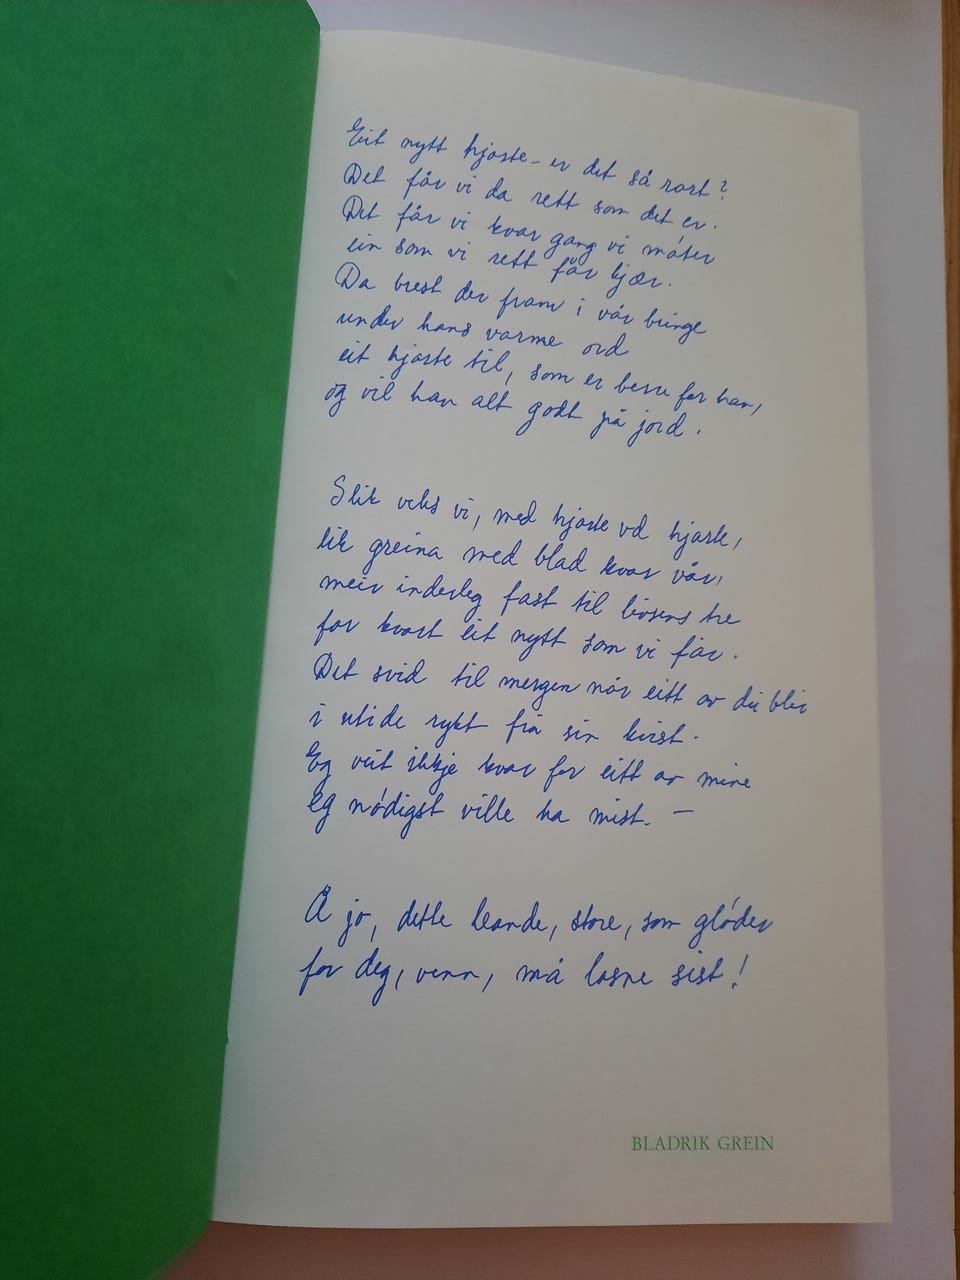 Eit nytt hjarte – er det så rart?
Det får vi da rett som det er.
Det får vi kvar gang vi møter
ein som vi rett får kjær.
Da brest der fram i vår bringe
under hans varme ord
eit hjarte til, som er berre for han,
og vil han alt godt på jord.
Slik veks vi, med hjarte ved hjarte,
lik greina med blad kvar vår,
meir inderleg fast til livsens tre
for kvart eit nytt som vi får.
Det svid til mergen når eitt av dei blir
i utide rykt frå sin kvist.
Eg veit ikkje kvar for eitt av mine
eg nødigst ville ha mist. –
Å jo, dette leande, store, som gløder
for deg, venn, må losne sist!
BLADRIK GREIN